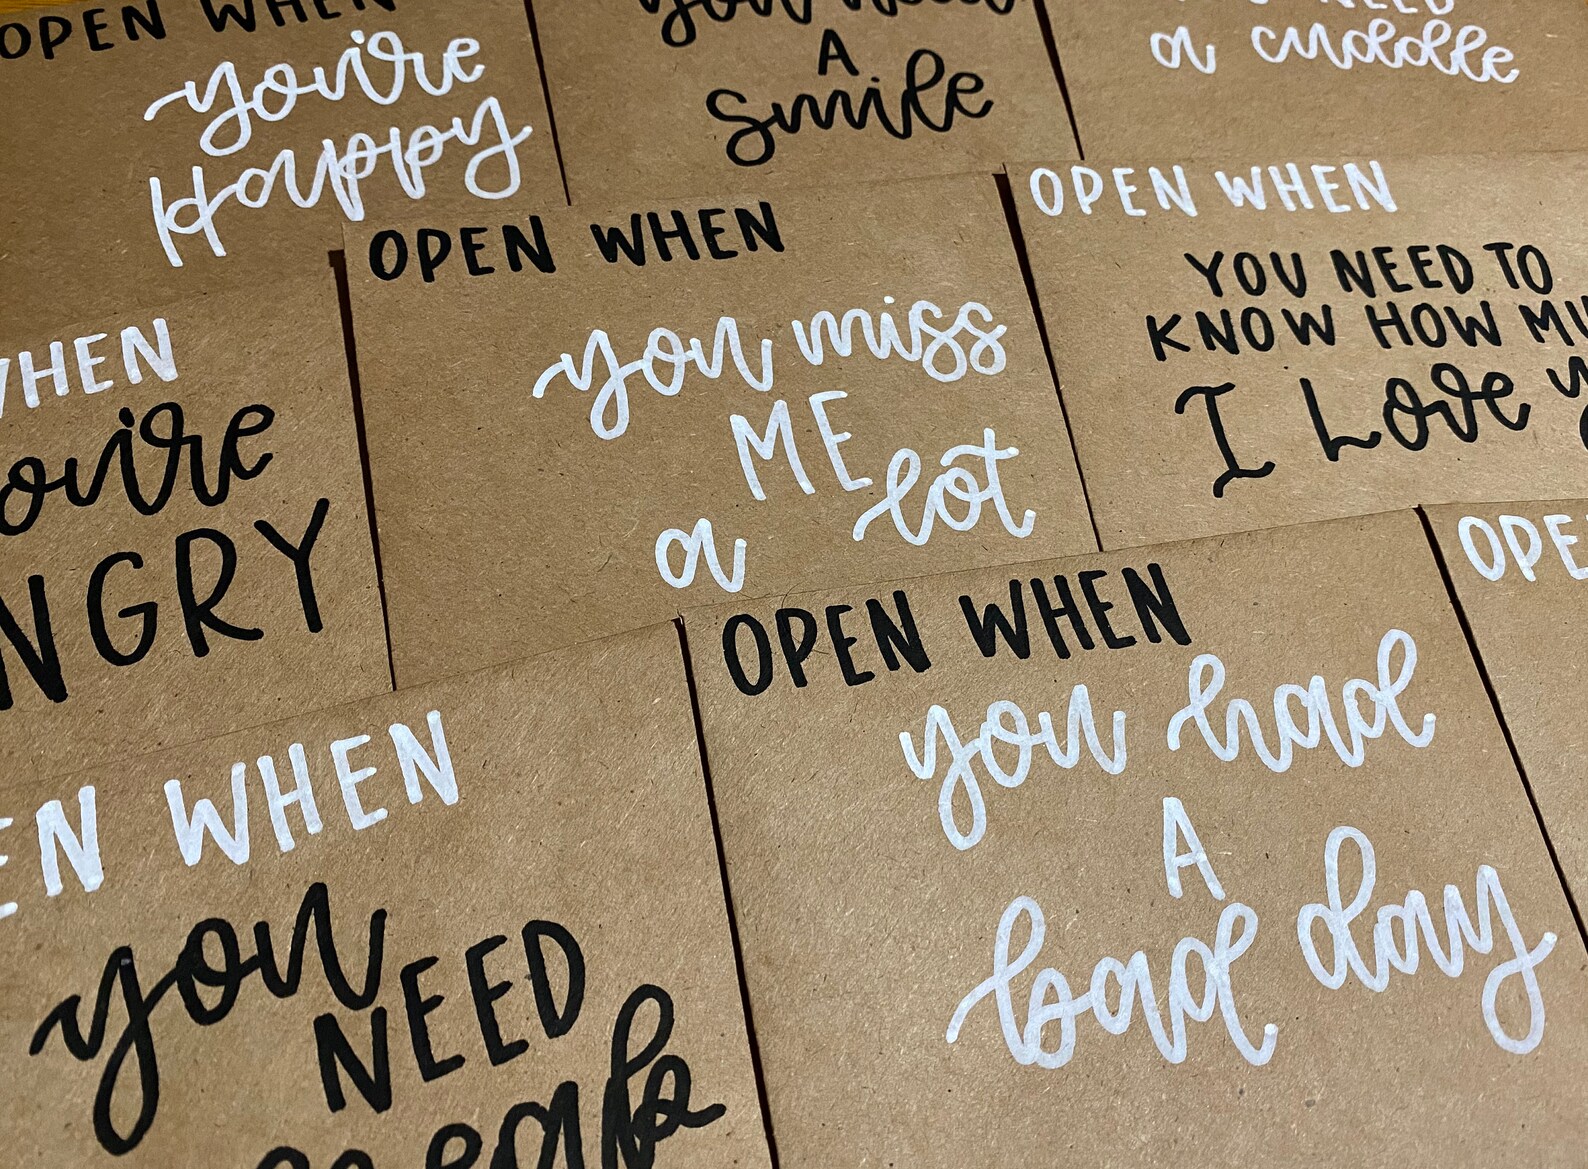 OPEN WHEN
you're
Happy
you need
A
smile
NEED
a cuddle
OPEN WHEN
you miss
ME
a lot
OPEN WHEN
YOU NEED TO
KNOW HOW MU
I Love y
WHEN
you're
NGRY
OPEN WHEN
you had
A
bad day
OPE
EN WHEN
you
NEED